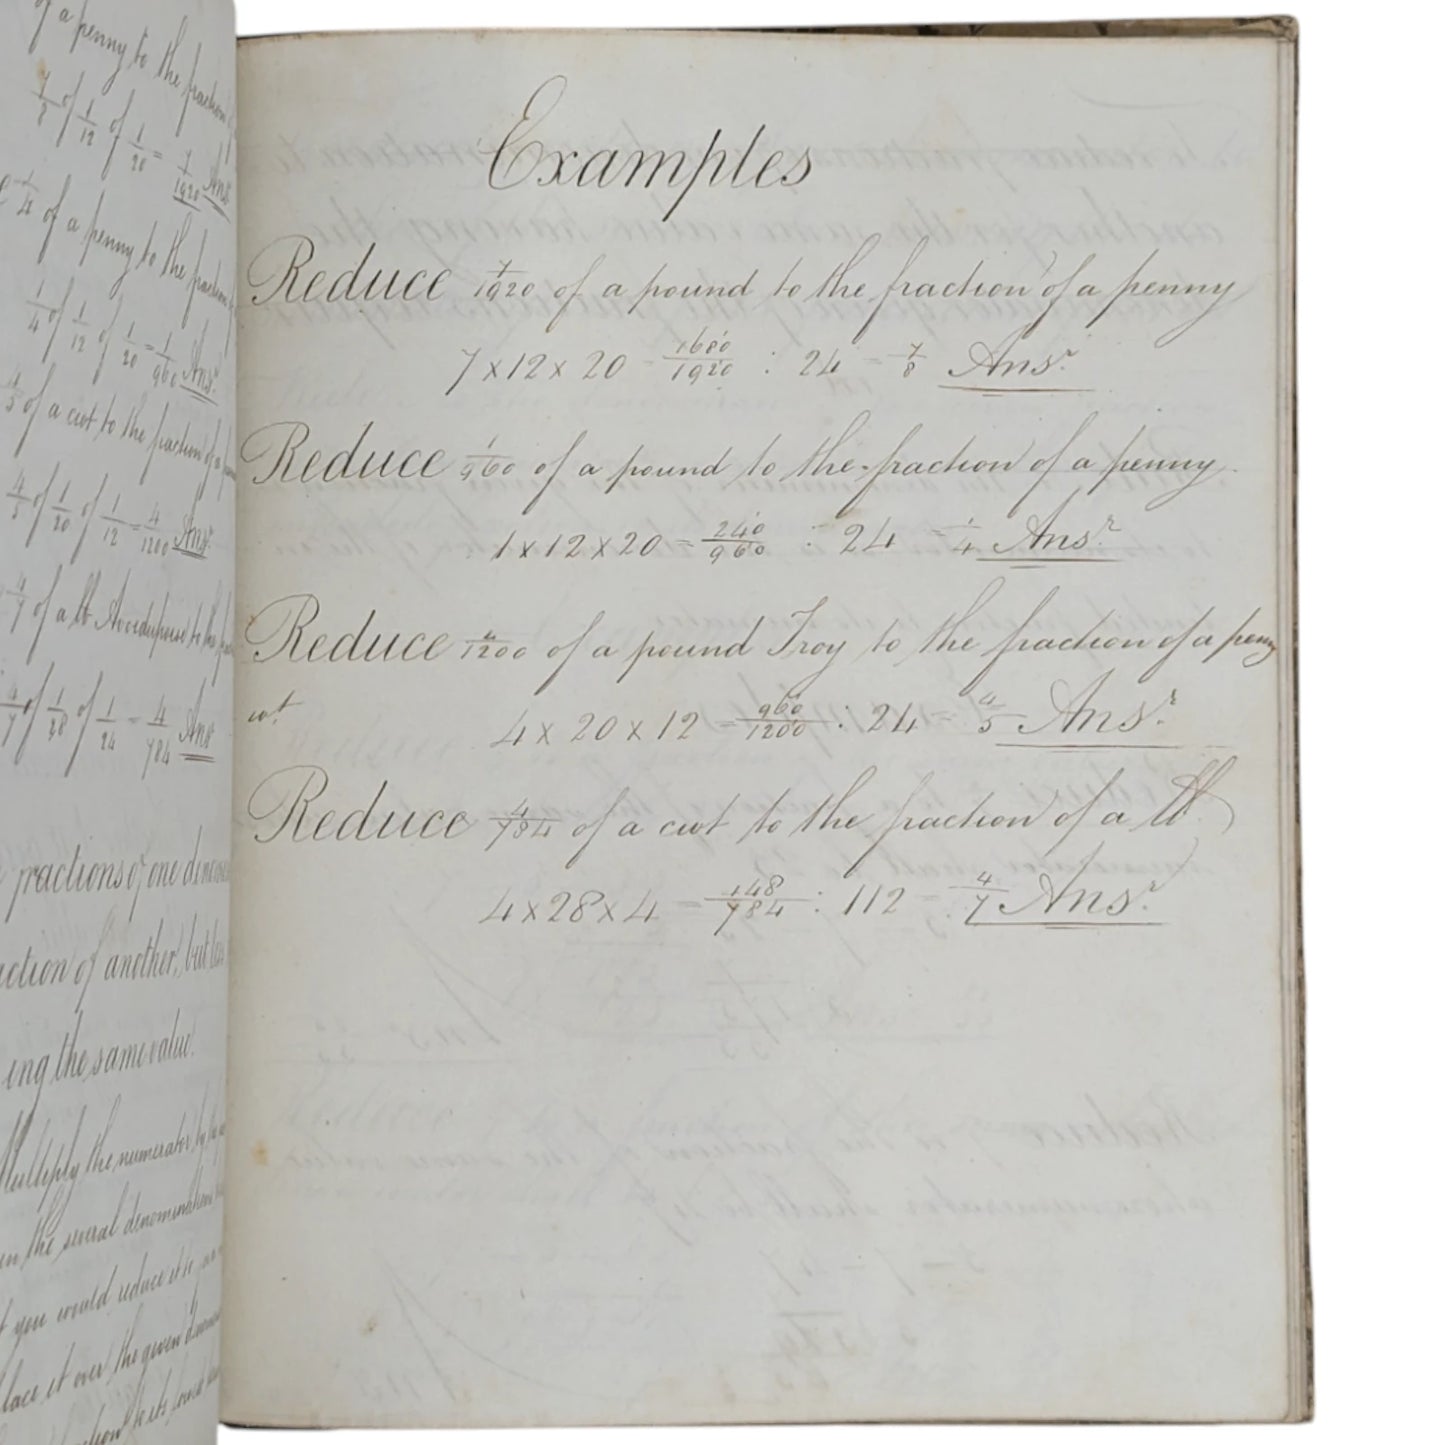 of a penny to the fraction
7/8 of 1/12 of 1/20 = 7/1920 Ans.
1/4 of a penny to the fraction
1/4 of 1/12 of 1/20 = 1/960 Ans.
4/5 of a cwt to the fraction of a
4/5 of 1/20 of 1/12 = 4/1200 Ans.
4/7 of a lb Avoirdupoise to the
4/7 of 1/28 of 1/24 = 4/784 Ans
fractions of one denom
action of another, but
ing the same value.
Multiply the numerator by
in the several denomination
you would reduce it to, and
lace it over the given denom
Examples
Reduce 7/1920 of a pound to the fraction of a penny
7 x 12 x 20 - 1680/1920 : 24 = 7/8 Ansr.
Reduce 1/960 of a pound to the fraction of a penny
1 x 12 x 20 = 240/960 : 24 = 1/4 Ansr.
Reduce 4/1200 of a pound Troy to the fraction of a penny
wt
4 x 20 x 12 = 960/1200 : 24 = 4/5 Ansr.
Reduce 4/784 of a cwt to the fraction of a lb.
4 x 28 x 4 = 448/784 : 112 = 4/7 Ansr.